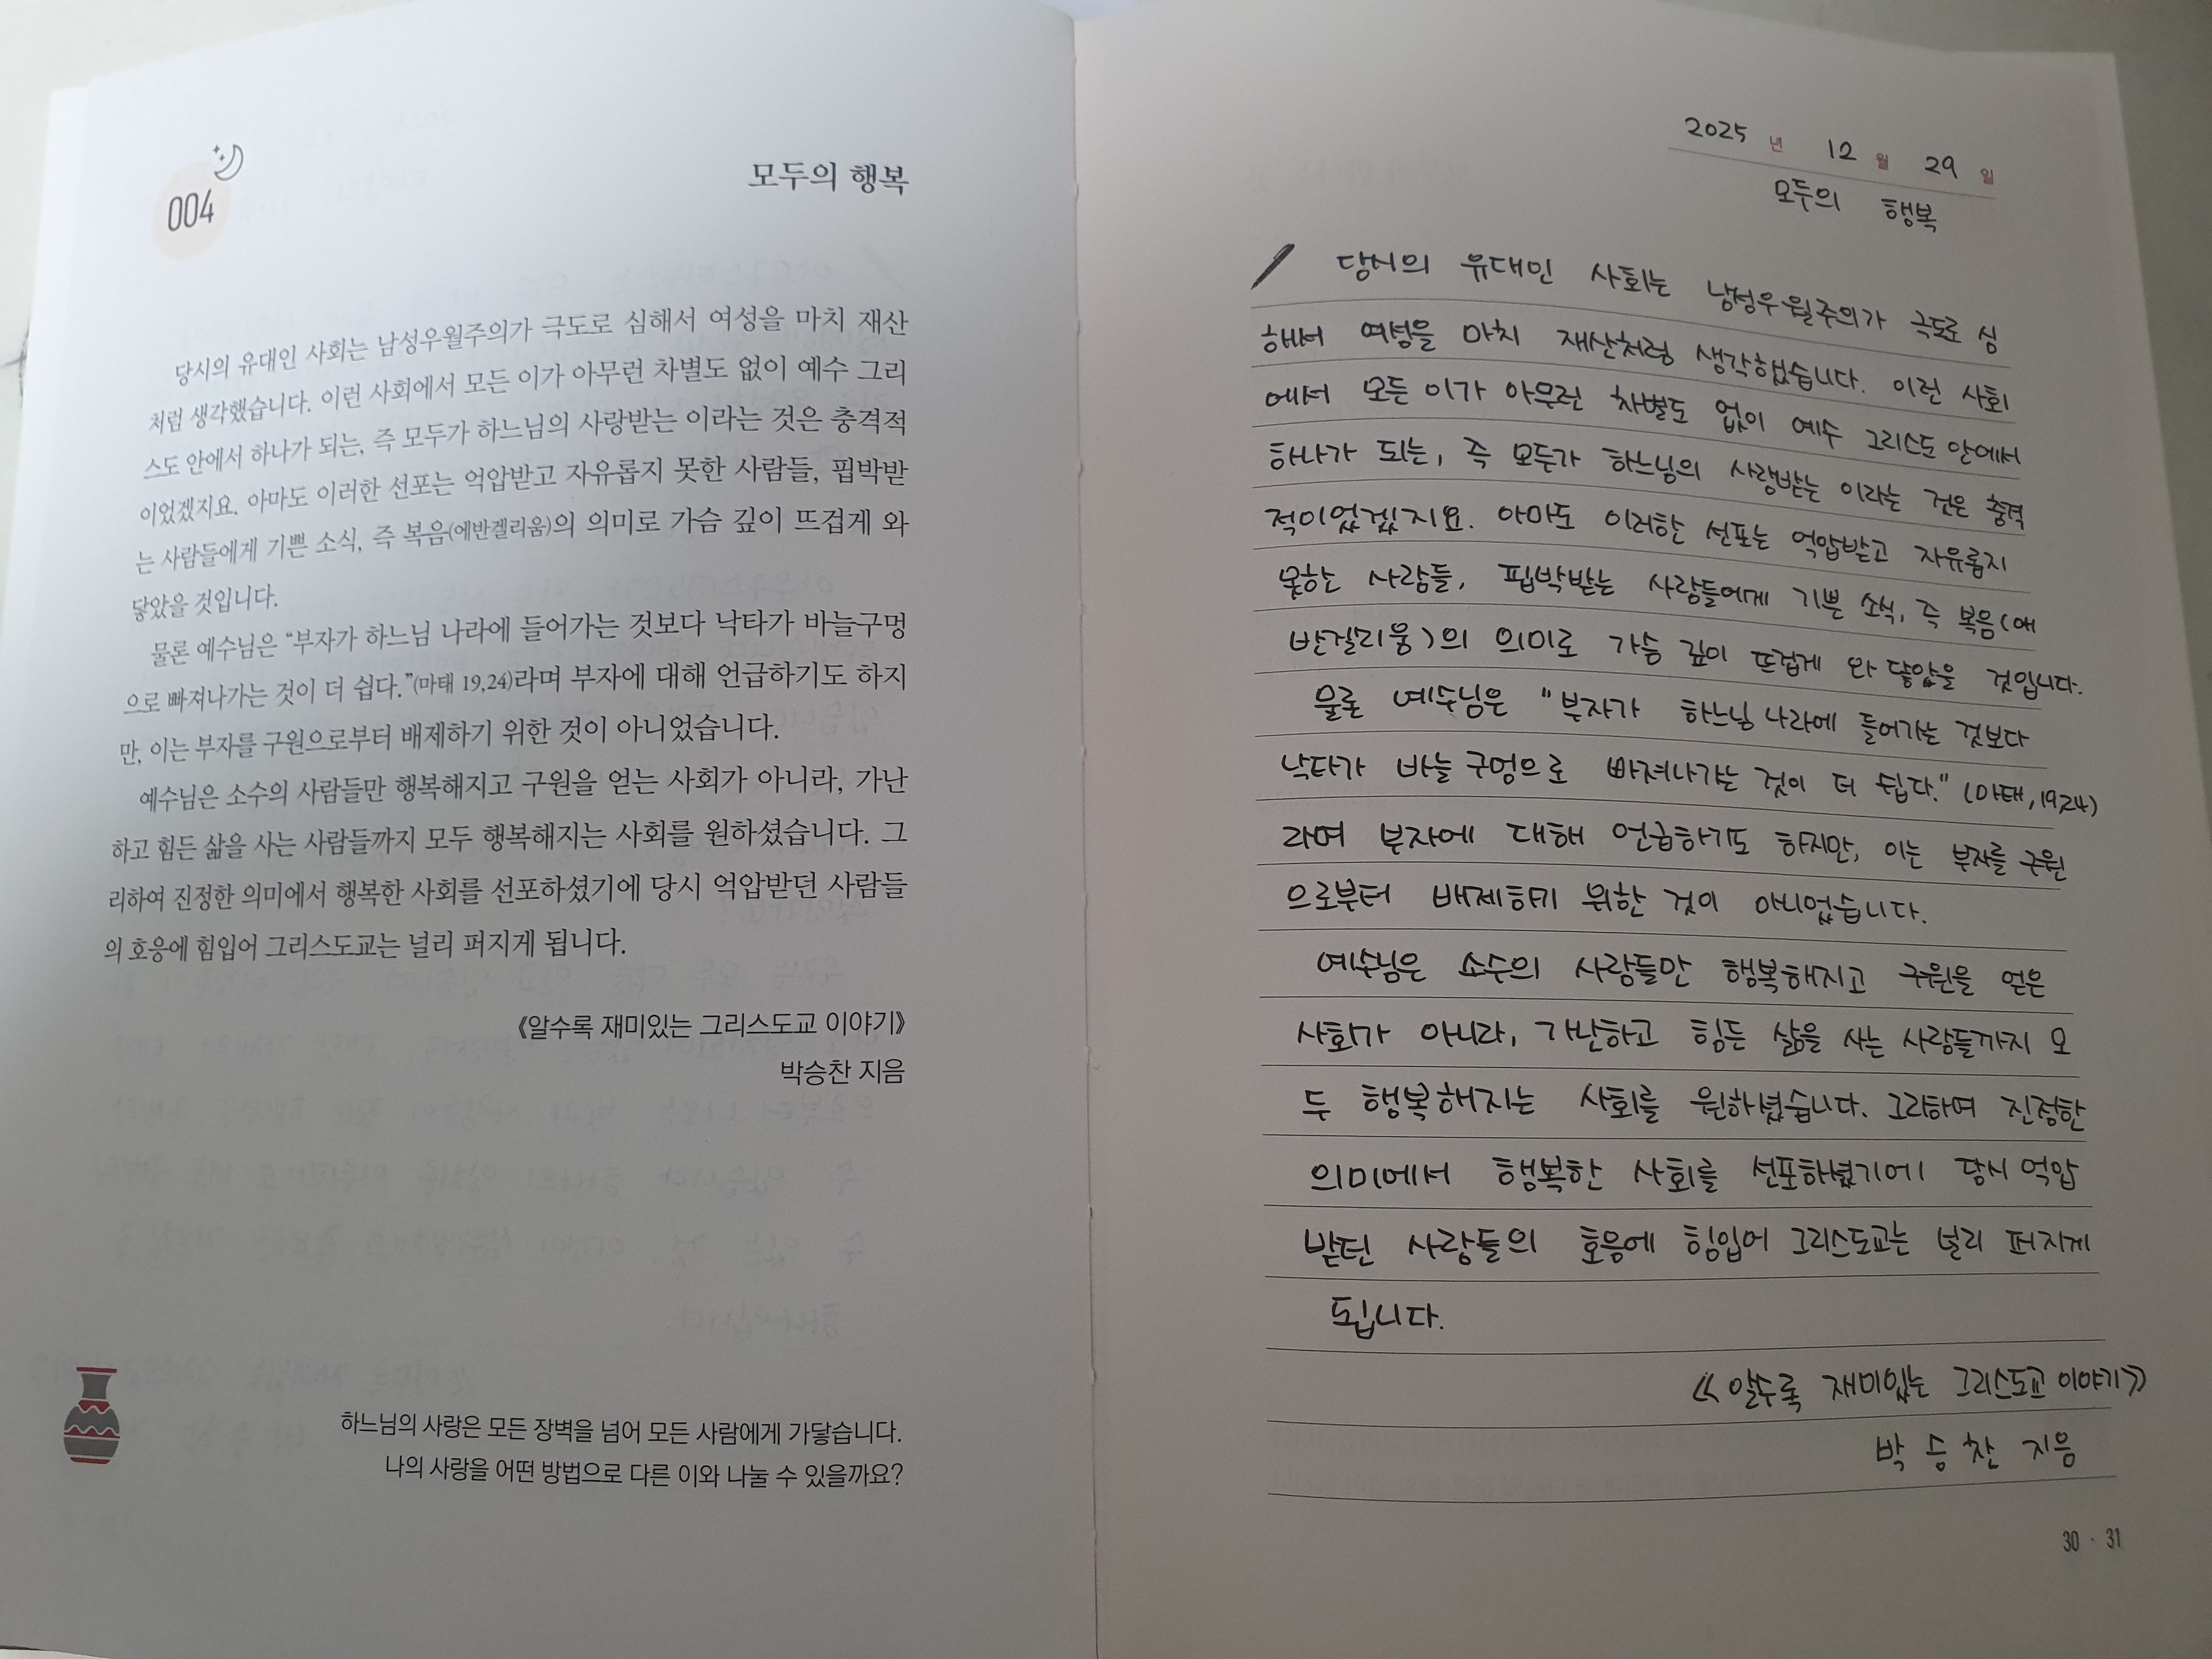 004
모두의 행복
당시의 유대인 사회는 남성우월주의가 극도로 심해서 여성을 마치 재산
처럼 생각했습니다. 이런 사회에서 모든 이가 아무런 차별도 없이 예수 그리
스도 안에서 하나가 되는, 즉 모두가 하느님의 사랑받는 이라는 것은 충격적
이었겠지요. 아마도 이러한 선포는 억압받고 자유롭지 못한 사람들, 핍박받
는 사람들에게 기쁜 소식, 즉 복음(에반겔리움)의 의미로 가슴 깊이 뜨겁게 와
닿았을 것입니다.
물론 예수님은 “부자가 하느님 나라에 들어가는 것보다 낙타가 바늘구멍
으로 빠져나가는 것이 더 쉽다.”(마태 19,24)라며 부자에 대해 언급하기도 하지
만, 이는 부자를 구원으로부터 배제하기 위한 것이 아니었습니다.
예수님은 소수의 사람들만 행복해지고 구원을 얻는 사회가 아니라, 가난
하고 힘든 삶을 사는 사람들까지 모두 행복해지는 사회를 원하셨습니다. 그
리하여 진정한 의미에서 행복한 사회를 선포하셨기에 당시 억압받던 사람들
의 호응에 힘입어 그리스도교는 널리 퍼지게 됩니다.
《알수록 재미있는 그리스도교 이야기》
박승찬 지음
하느님의 사랑은 모든 장벽을 넘어 모든 사람에게 가닿습니다.
나의 사랑을 어떤 방법으로 다른 이와 나눌 수 있을까요?
2025 년 12 월 29 일
모두의 행복
당시의 유대인 사회는 남성우월주의가 극도로 심
해서 여성을 마치 재산처럼 생각했습니다. 이런 사회
에서 모든 이가 아무런 차별도 없이 예수 그리스도 안에서
하나가 되는, 즉 모두가 하느님의 사랑받는 이라는 것은 충격
적이었겠지요. 아마도 이러한 선포는 억압받고 자유롭지
못한 사람들, 핍박받는 사람들에게 기쁜 소식, 즉 복음(에
반걸리움)의 의미로 가슴 깊이 뜨겁게 와 닿았을 것입니다.
물론 예수님은 "부자가 하느님 나라에 들어가는 것보다
낙타가 바늘 구멍으로 빠져나가는 것이 더 쉽다." (마태, 19,24)
라며 부자에 대해 언급하기도 하지만, 이는 부자를 구원
으로부터 배제하기 위한 것이 아니었습니다.
예수님은 소수의 사람들만 행복해지고 구원을 얻은
사회가 아니라, 가난하고 힘든 삶을 사는 사람들까지 모
두 행복해지는 사회를 원하셨습니다. 그리하여 진정한
의미에서 행복한 사회를 선포하셨기에 당시 억압
받던 사람들의 호응에 힘입어 그리스도교는 널리 퍼지게
됩니다.
《알수록 재미있는 그리스도교 이야기》
박승찬 지음
30 · 31